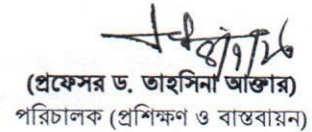 ৪/১/২৬
(প্রফেসর ড. তাহসিনা আক্তার)
পরিচালক (প্রশিক্ষণ ও বাস্তবায়ন)